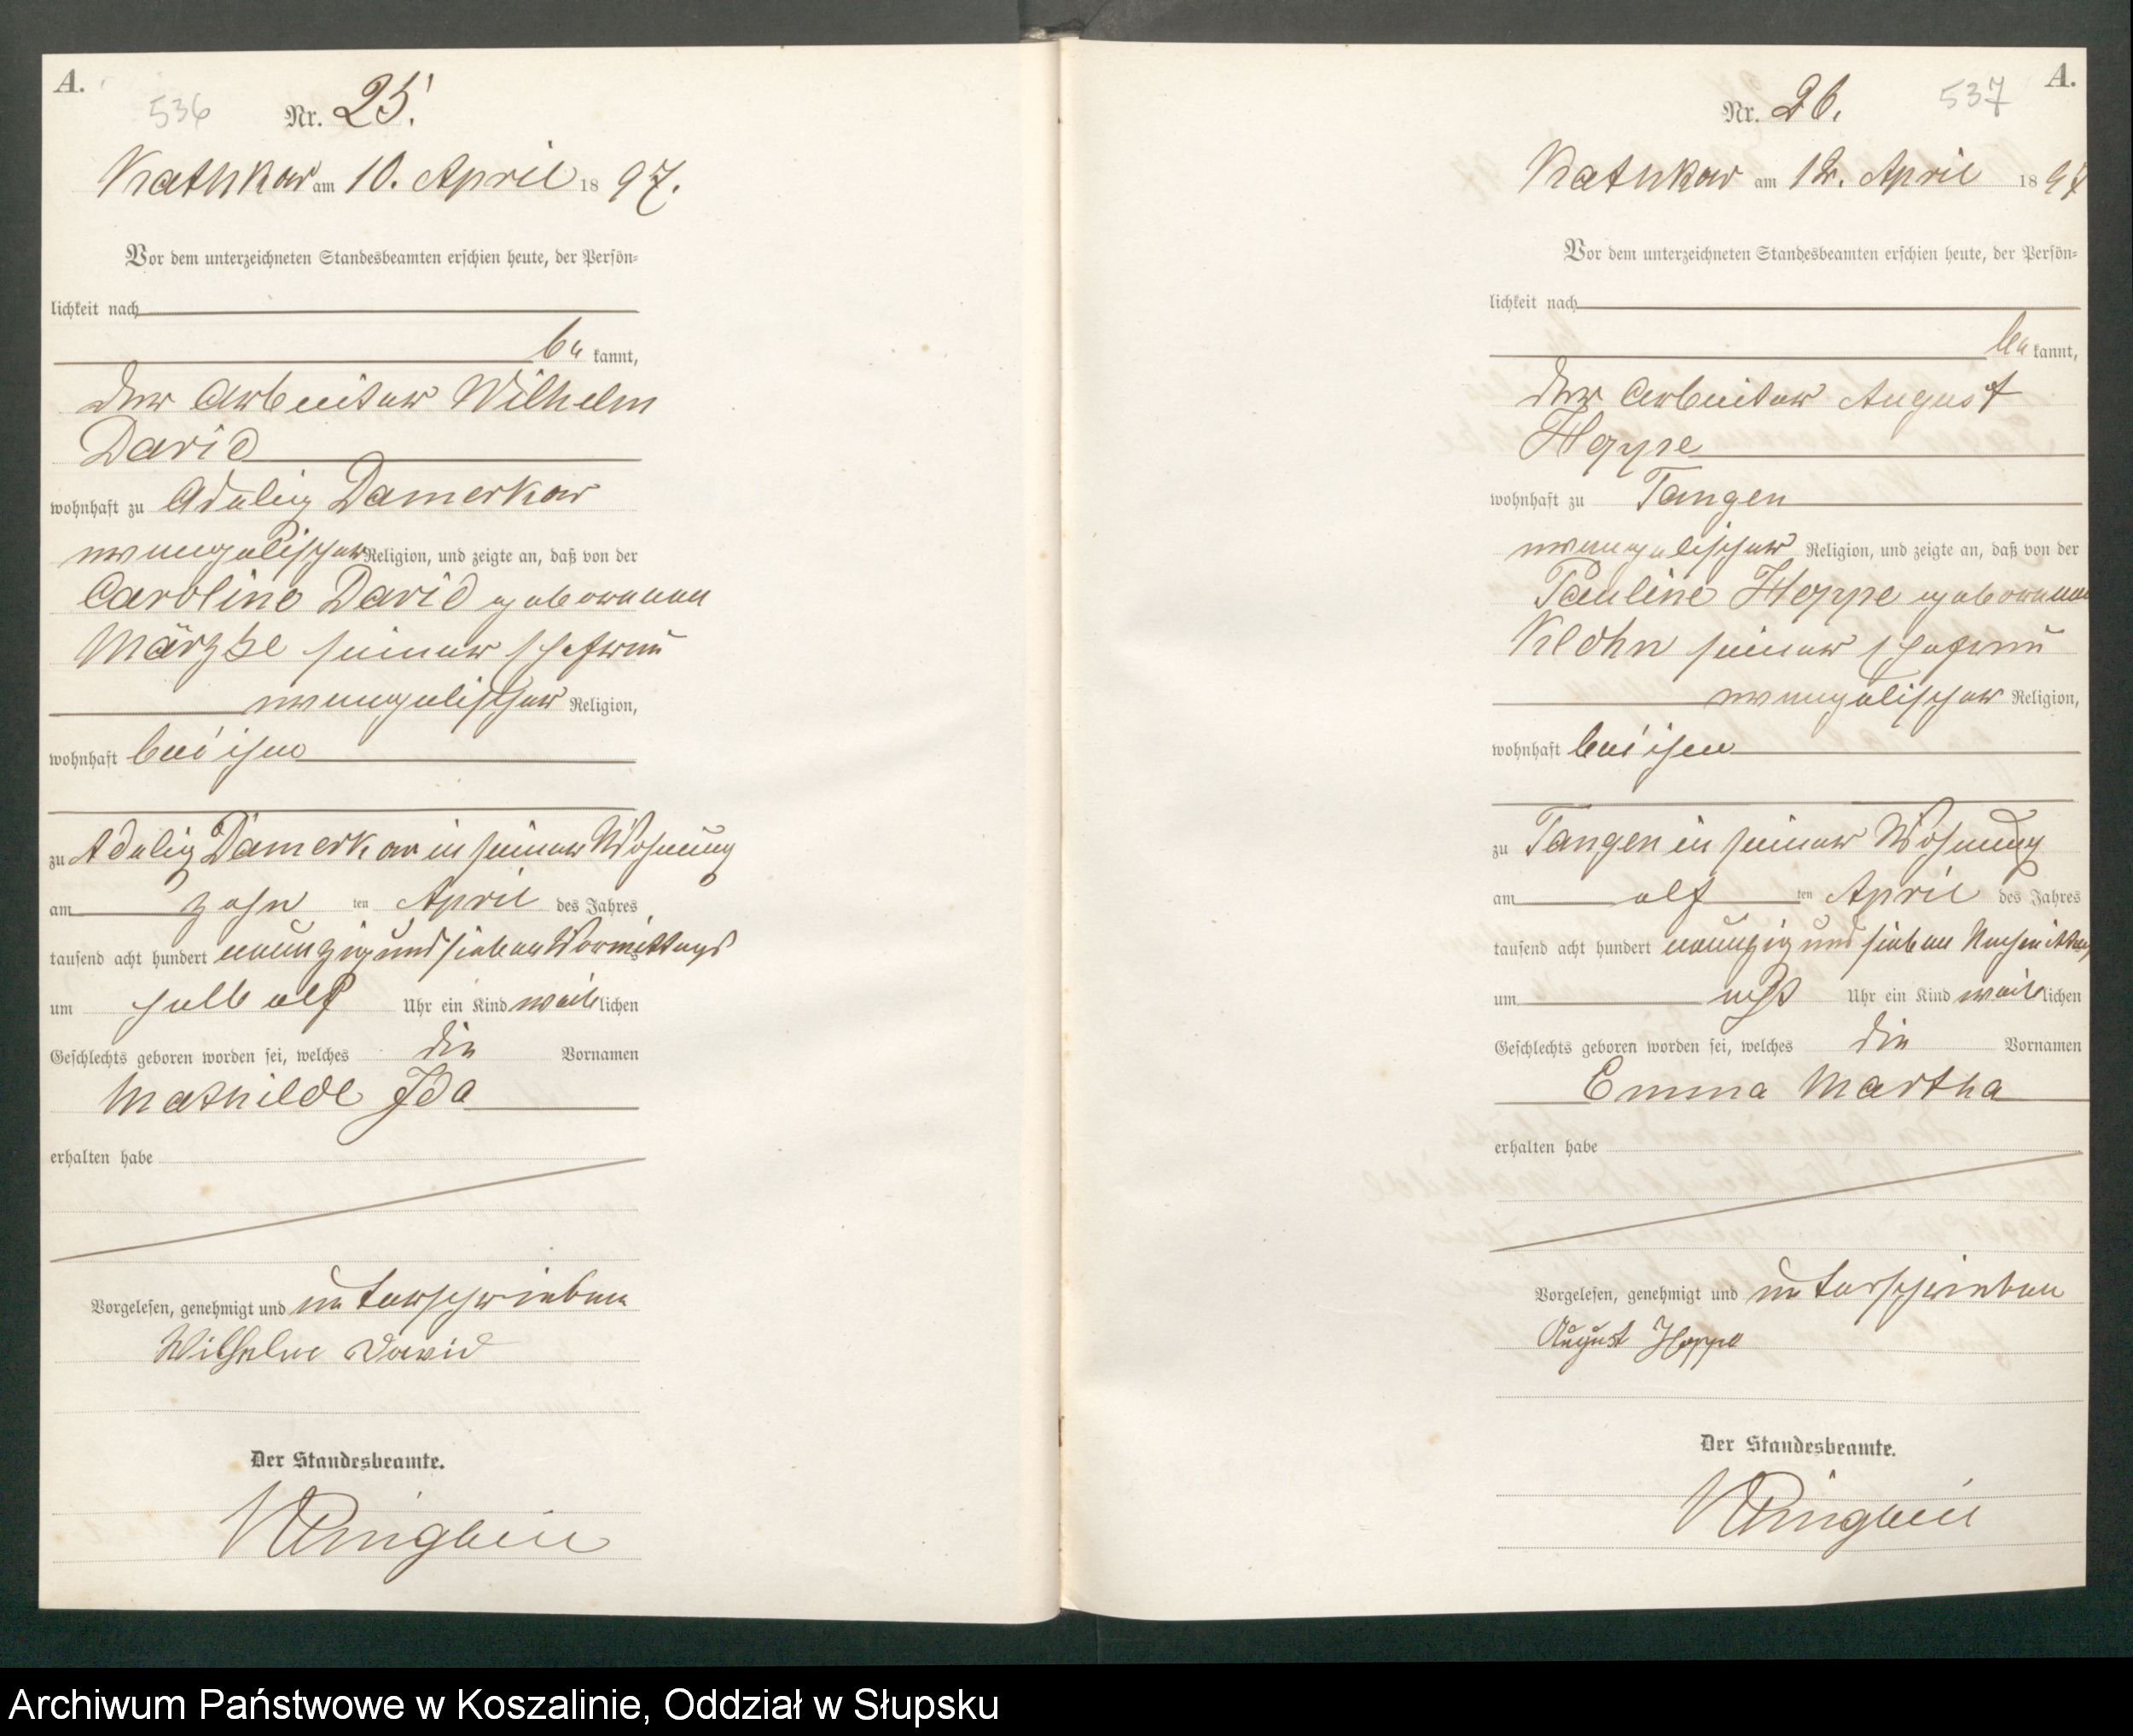 A.
536
Nr. 25.
Kathkow am 10. April 1897.
Vor dem unterzeichneten Standesbeamten erschien heute, der Persön-
lichkeit nach
be kannt,
der Arbeiter Wilhelm
David
wohnhaft zu Adelig Damerkow
evangelischer Religion, und zeigte an, daß von der
Caroline David geborenen
Märzke seiner Ehefrau
evangelischer Religion,
wohnhaft bei ihm
zu Adelig Damerkow in seiner Wohnung
am zehn ten April des Jahres
tausend acht hundert neunzig und sieben Vormittags
um halb elf Uhr ein Kind weiblichen
Geschlechts geboren worden sei, welches die Vornamen
Mathilde Ida
erhalten habe
Vorgelesen, genehmigt und unterschrieben
Wilhelm David
Der Standesbeamte.
A.
537
Nr. 26.
Kathkow am 12. April 1897
Vor dem unterzeichneten Standesbeamten erschien heute, der Persön-
lichkeit nach
be kannt,
der Arbeiter August
Hoppe
wohnhaft zu Tangen
evangelischer Religion, und zeigte an, daß von der
Pauline Hoppe geborenen
Klohn seiner Ehefrau
evangelischer Religion,
wohnhaft bei ihm
zu Tangen in seiner Wohnung
am elf ten April des Jahres
tausend acht hundert neunzig und sieben Nachmittags
um acht Uhr ein Kind weiblichen
Geschlechts geboren worden sei, welches die Vornamen
Emma Martha
erhalten habe
Vorgelesen, genehmigt und unterschrieben
August Hoppe
Der Standesbeamte.
Archiwum Państwowe w Koszalinie, Oddział w Słupsku